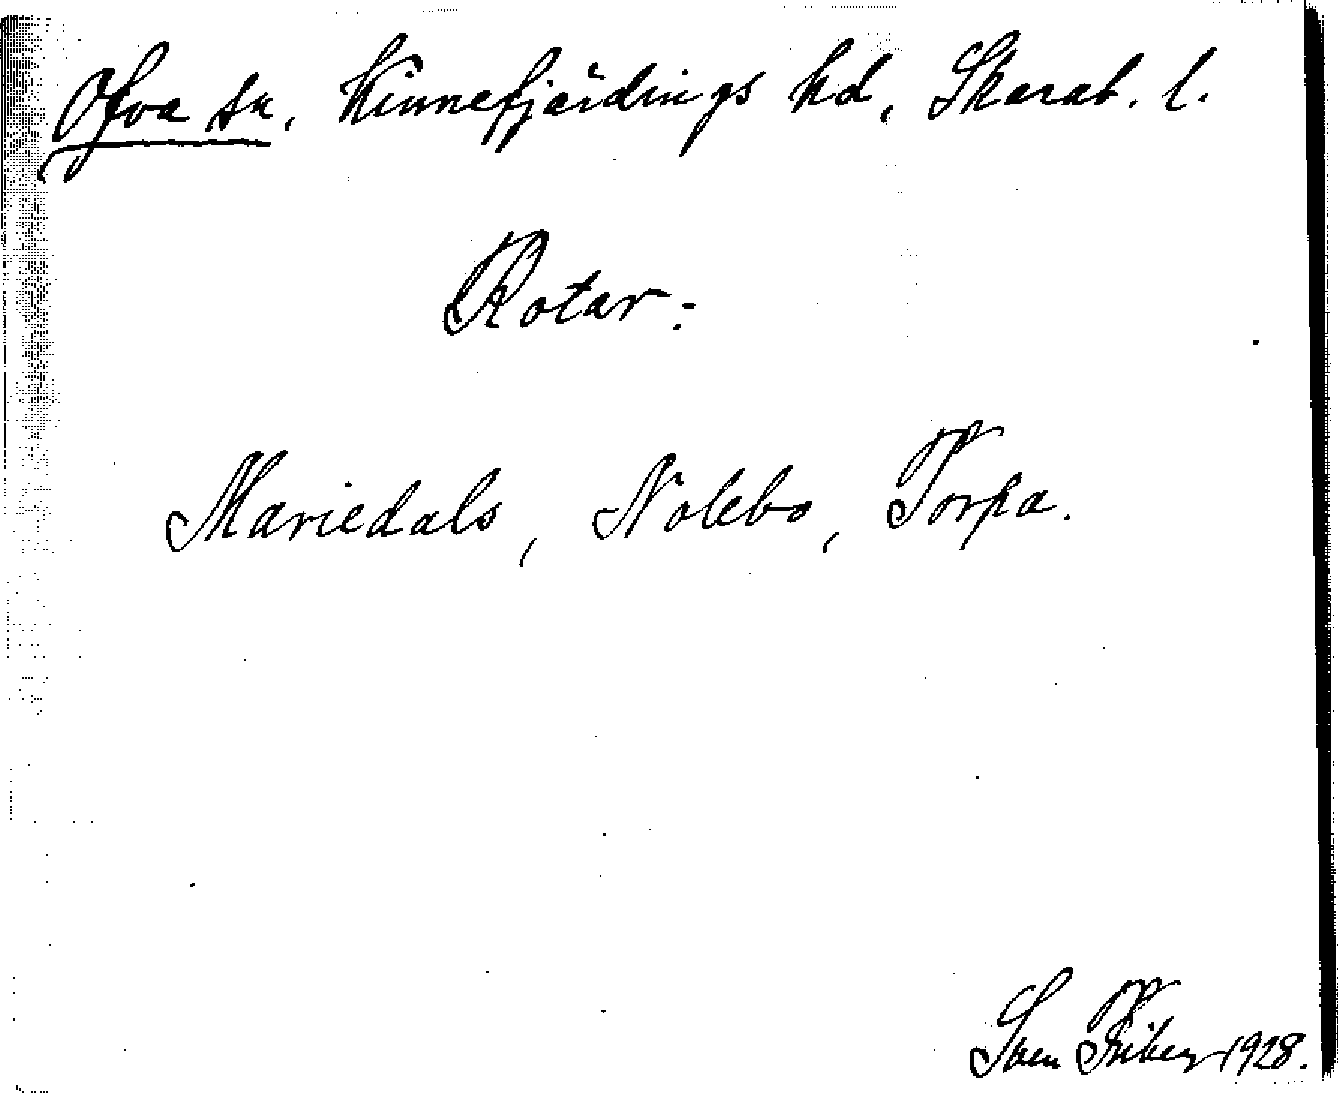 Ova sn, Kinnefjärdings hd, Skarab. l.
Rotar:
Mariedals, Nolebo, Torpa.
Sven Friberg 1928.